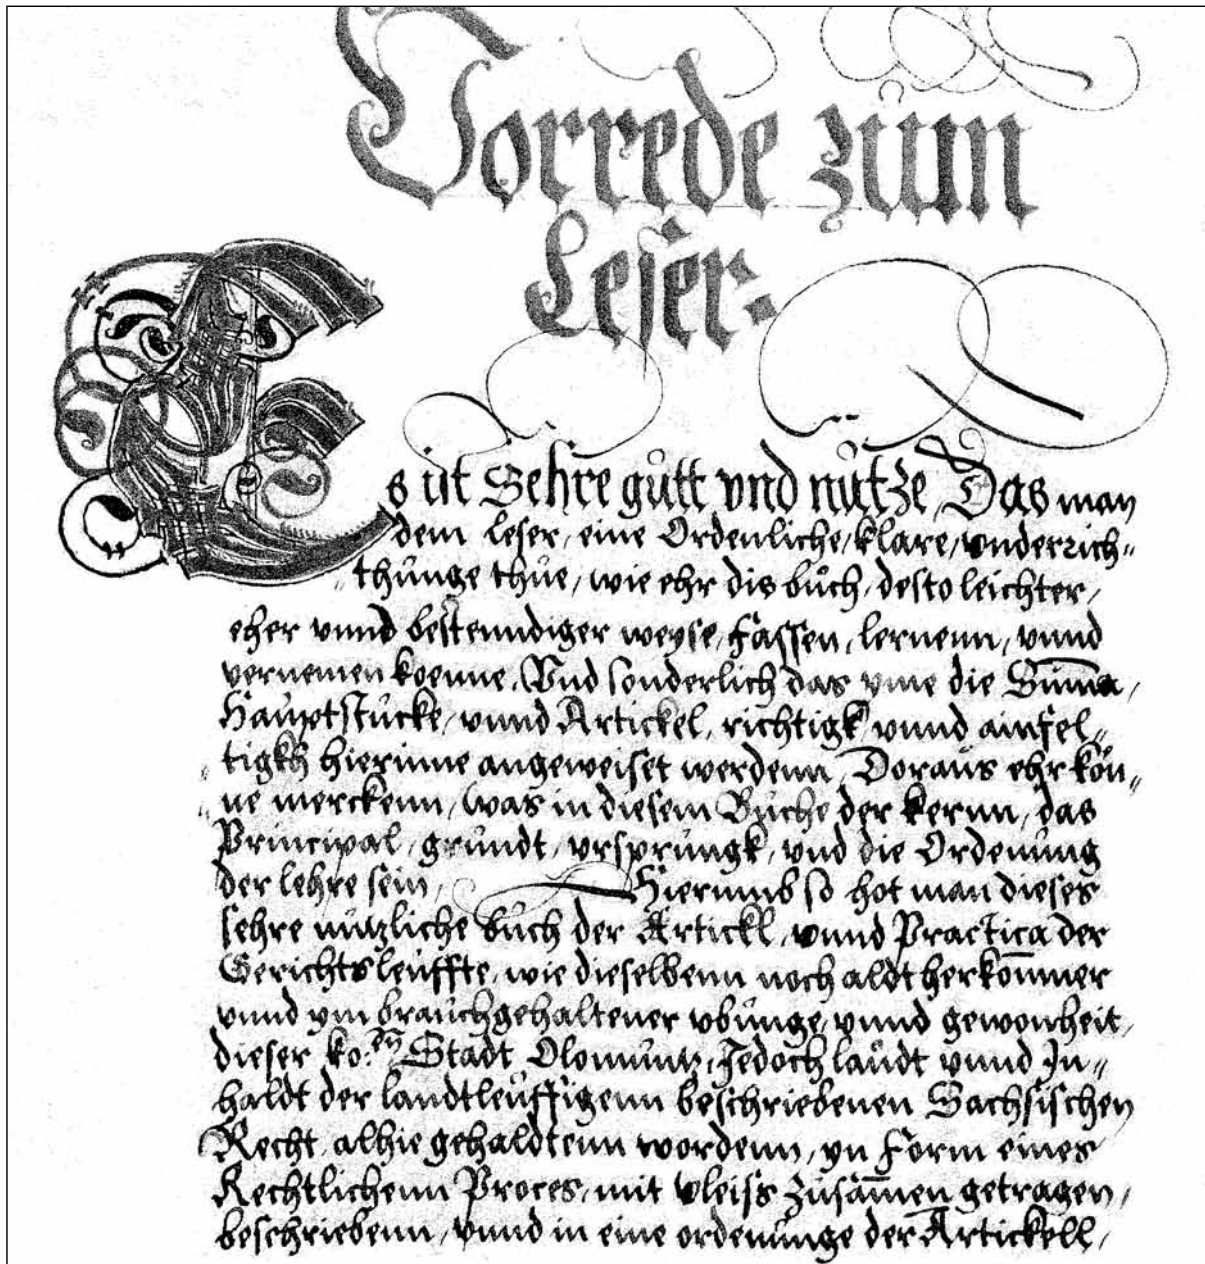 Vorrede zum
Leser.
Es ist Sehre gůtt vnd nůtze, Das man
dem leser, eine Ordenliche, klare, vnderrich„
„thůnge thůe, wie ehr dis bůch, desto leichter,
eher vnnd bestenndiger weyse, fassen, lernenn, vnnd
vernemen koenne, Vnd sonderlich das yme die Sum̄a,
Haůptstůcke, vnnd Artickel, richtigk vnnd ainfel„
„tigkh hierinne angeweiset werdenn, Doraůs ehr kön„
„ne merckenn, was in diesem Bůche der kernn, das
Principal, grůndt, vrsprůngk, vnd die Ordenůng
der lehre sein, Hierumb so hot man dieses
sehre nůtzliche bůch der Artickl, vnnd Practica der
Gerichtsleůffte, wie dieselbenn noch aldt herkom̄er
vnnd ym braůchgehaltener vbůnge, vnnd gewonheit,
dieser ko: Stadt Olomůntz, Jedoch laůdt vnnd Jn„
haldt der landtleůffigenn beschriebenen Sachsischen
Recht, alhie gehaldtenn wordenn, yn form eines
Rechtlichenn Proces, mit vleiss zůsam̄en getragen,
beschriebenn, vnnd in eine ordenůnge der Artickell,